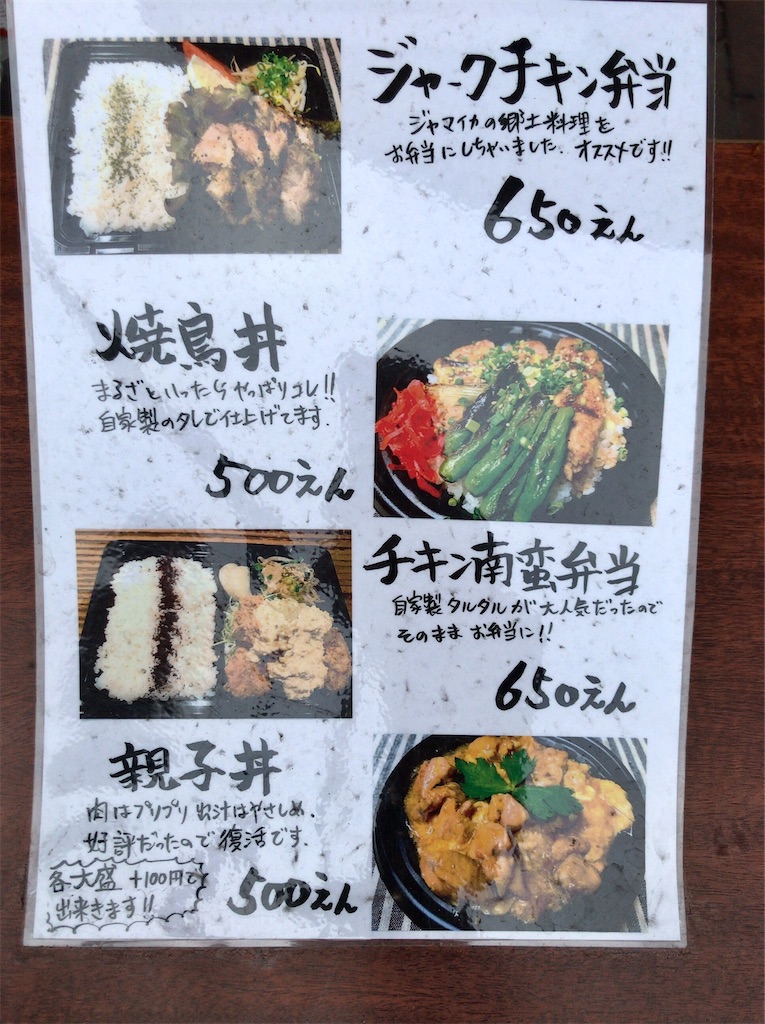 ジャークチキン弁当
ジャマイカの郷土料理を
お弁当にしちゃいました。オススメです!!
650えん
焼鳥丼
まるざといったらやっぱりコレ!!
自家製のタレで仕上げてます。
500えん
チキン南蛮弁当
自家製タルタルが大人気だったので
そのままお弁当に!!
650えん
親子丼
肉はプリプリ出汁はやさしめ、
好評だったので復活です。
各大盛+100円で
出来きます!!
500えん